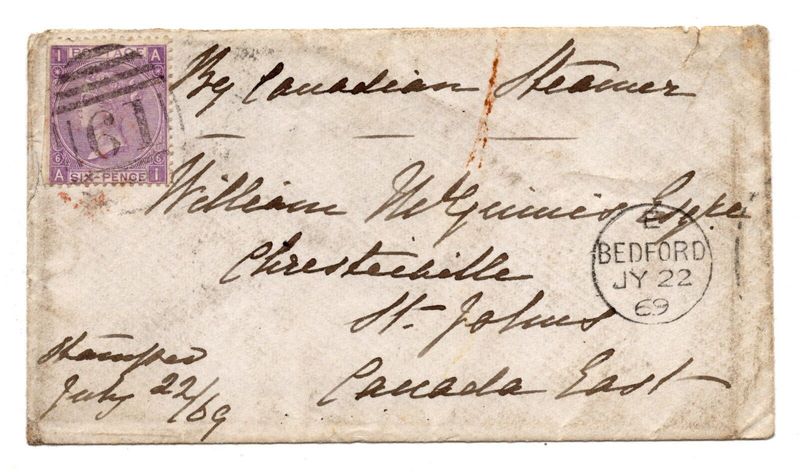 I POSTAGE A
By Canadian Steamer
61
6 6
A SIX-PENCE I
William McGinnis Esqre
E
BEDFORD
JY 22
69
Christieville
St. Johns
Canada East
Stamped
July 22/69